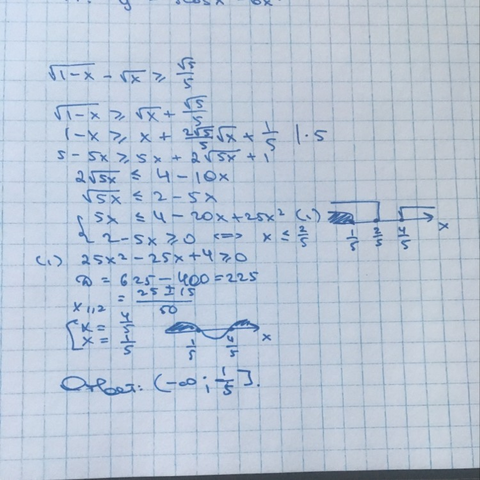 √1-x - √x ≥ √5/5
√1-x ≥ √x + √5/5
1-x ≥ x + 2√5/5 √x + 1/5 | · 5
5 - 5x ≥ 5x + 2√5x + 1
2√5x ≤ 4 - 10x
√5x ≤ 2 - 5x
{ 5x ≤ 4 - 20x + 25x² (1) 1/5 2/5 4/5 x
2 - 5x ≥ 0 <=> x ≤ 2/5
(1) 25x² - 25x + 4 ≥ 0
D = 625 - 400 = 225
x1,2 = 25 ± 15 / 50
[ x = 4/5
x = 1/5 1/5 4/5 x
Ответ: (-∞; 1/5].